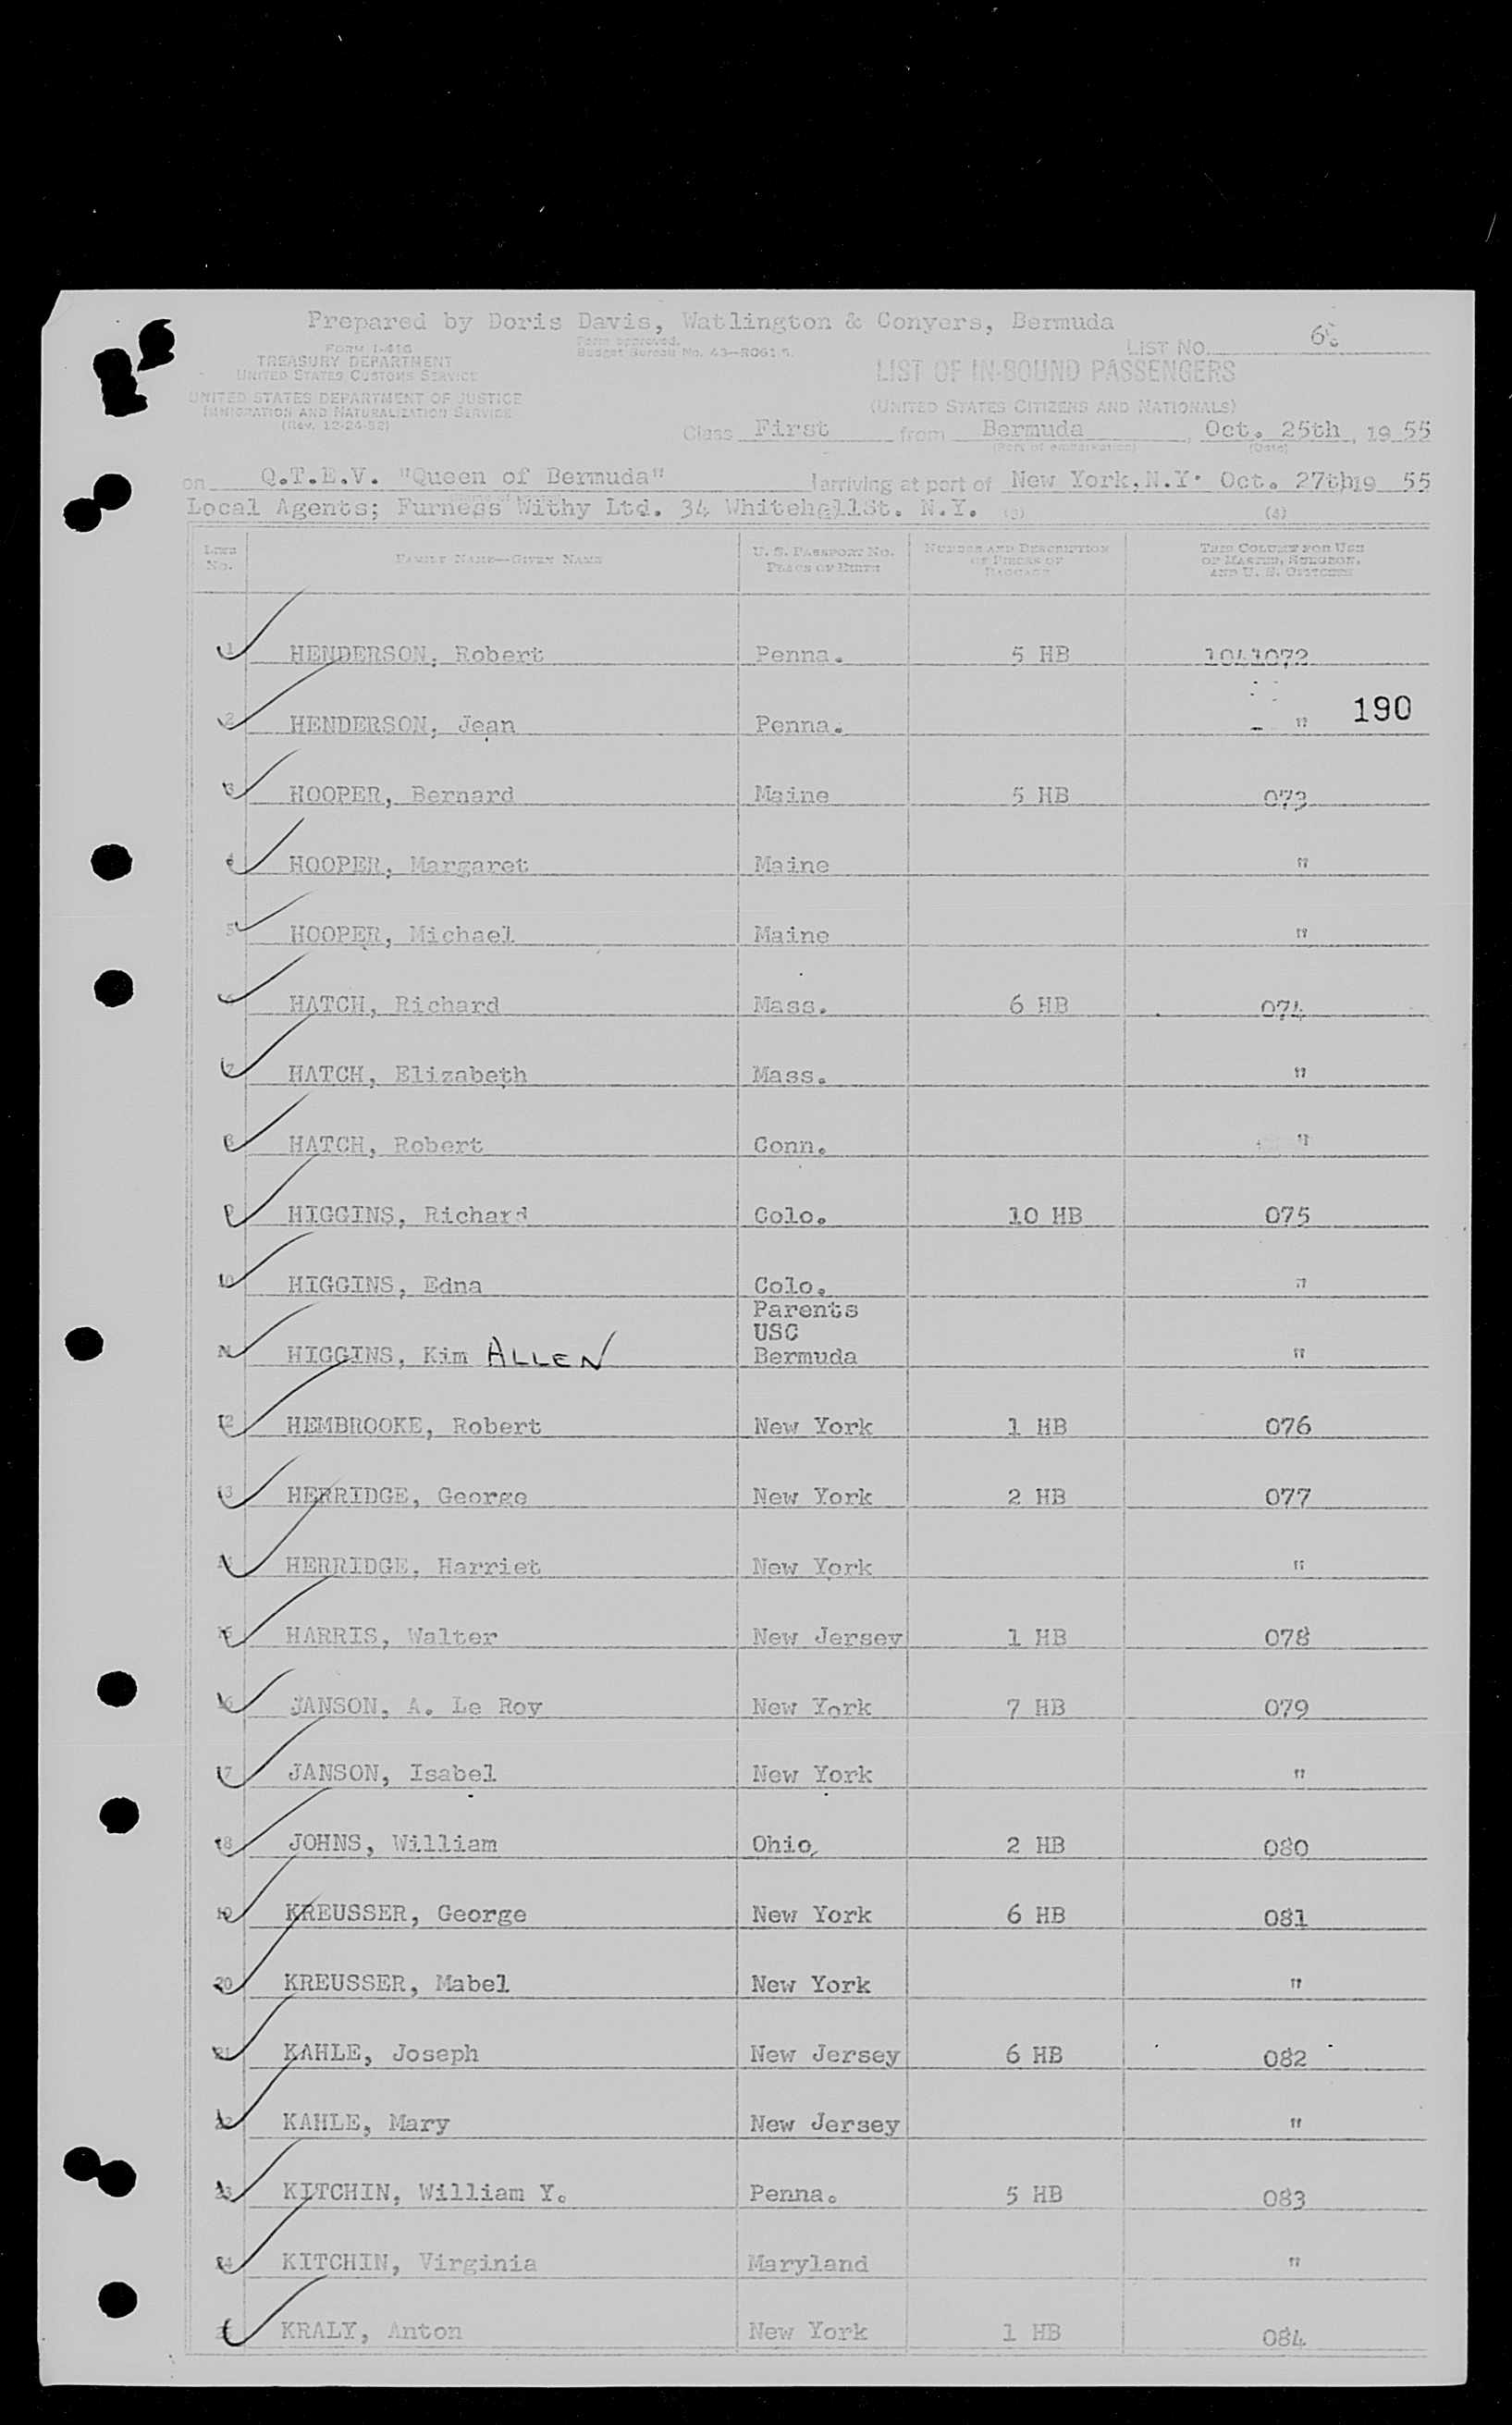 Prepared by Doris Davis, Watlington & Conyers, Bermuda
Form approved.
Budget Bureau No. 43—R061
LIST NO. 6
FORM I-416
TREASURY DEPARTMENT
UNITED STATES CUSTOMS SERVICE
UNITED STATES DEPARTMENT OF JUSTICE
IMMIGRATION AND NATURALIZATION SERVICE
(Rev. 12-24-52)
LIST OF IN-BOUND PASSENGERS
(UNITED STATES CITIZENS AND NATIONALS)
Class First from Bermuda, Oct. 25th, 19 55
(Port of embarkation) (Date)
on Q.T.E.V. "Queen of Bermuda" arriving at port of New York, N.Y. Oct. 27th19 55
Local Agents; Furness Withy Ltd. 34 WhitehallSt. N.Y. (3) (4)
LINE No. FAMILY NAME—GIVEN NAME U. S. PASSPORT NO. PLACE OF BIRTH NUMBER AND DESCRIPTION OF PIECES OF BAGGAGE THIS COLUMN FOR USE OF MASTER, SURGEON, AND U. S. CUSTOMS
1 HENDERSON, Robert Penna. 5 HB 1041072
2 HENDERSON, Jean Penna. " 190
3 HOOPER, Bernard Maine 5 HB 073
4 HOOPER, Margaret Maine "
5 HOOPER, Michael Maine "
6 HATCH, Richard Mass. 6 HB 074
7 HATCH, Elizabeth Mass. "
8 HATCH, Robert Conn. "
9 HIGGINS, Richard Colo. 10 HB 075
10 HIGGINS, Edna Colo. "
11 HIGGINS, Kim ALLEN Parents USC Bermuda "
12 HEMBROOKE, Robert New York 1 HB 076
13 HERRIDGE, George New York 2 HB 077
14 HERRIDGE, Harriet New York "
15 HARRIS, Walter New Jersey 1 HB 078
16 JANSON, A. Le Roy New York 7 HB 079
17 JANSON, Isabel New York "
18 JOHNS, William Ohio 2 HB 080
19 KREUSSER, George New York 6 HB 081
20 KREUSSER, Mabel New York "
21 KAHLE, Joseph New Jersey 6 HB 082
22 KAHLE, Mary New Jersey "
23 KITCHIN, William Y. Penna. 5 HB 083
24 KITCHIN, Virginia Maryland "
25 KRALY, Anton New York 1 HB 084